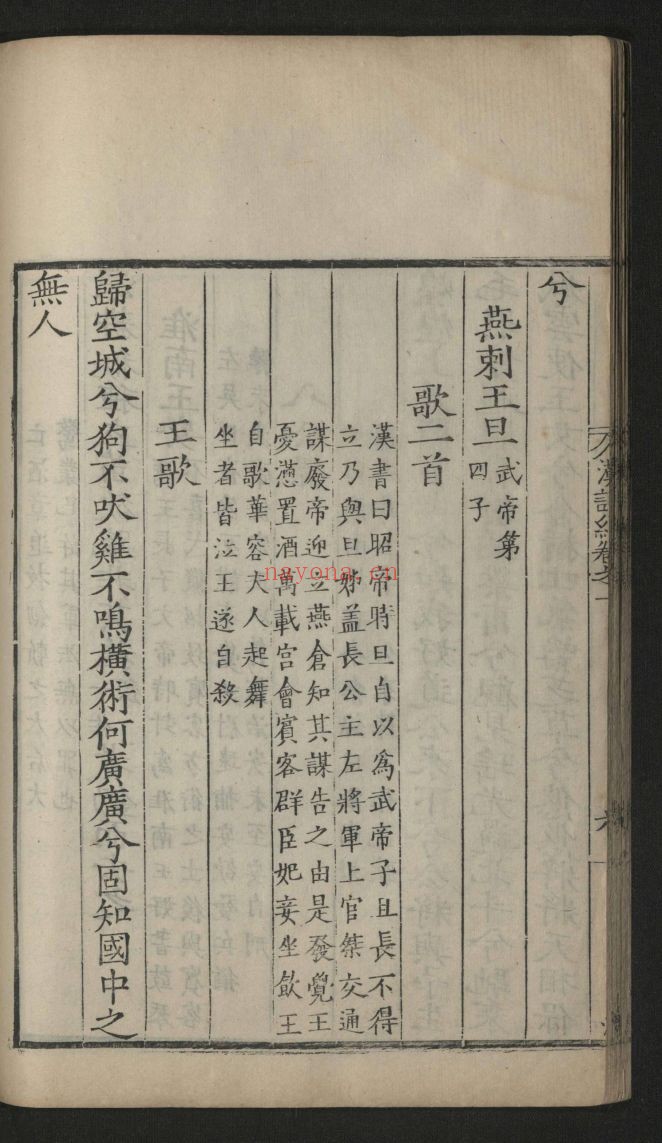 兮
燕刺王旦武帝第
四子
歌二首
漢書曰昭帝時旦自以爲武帝子且長不得
立乃與旦姊蓋長公主左將軍上官桀交通
謀廢帝迎立燕倉知其謀告之由是發覺王
憂懣置酒萬載宮會賓客群臣妃妾坐飲王
自歌華容夫人起舞
坐者皆泣王遂自殺
王歌
歸空城兮狗不吠雞不鳴橫術何廣廣兮固知國中之
無人
漢詩紀卷之一
六
nayona.cn